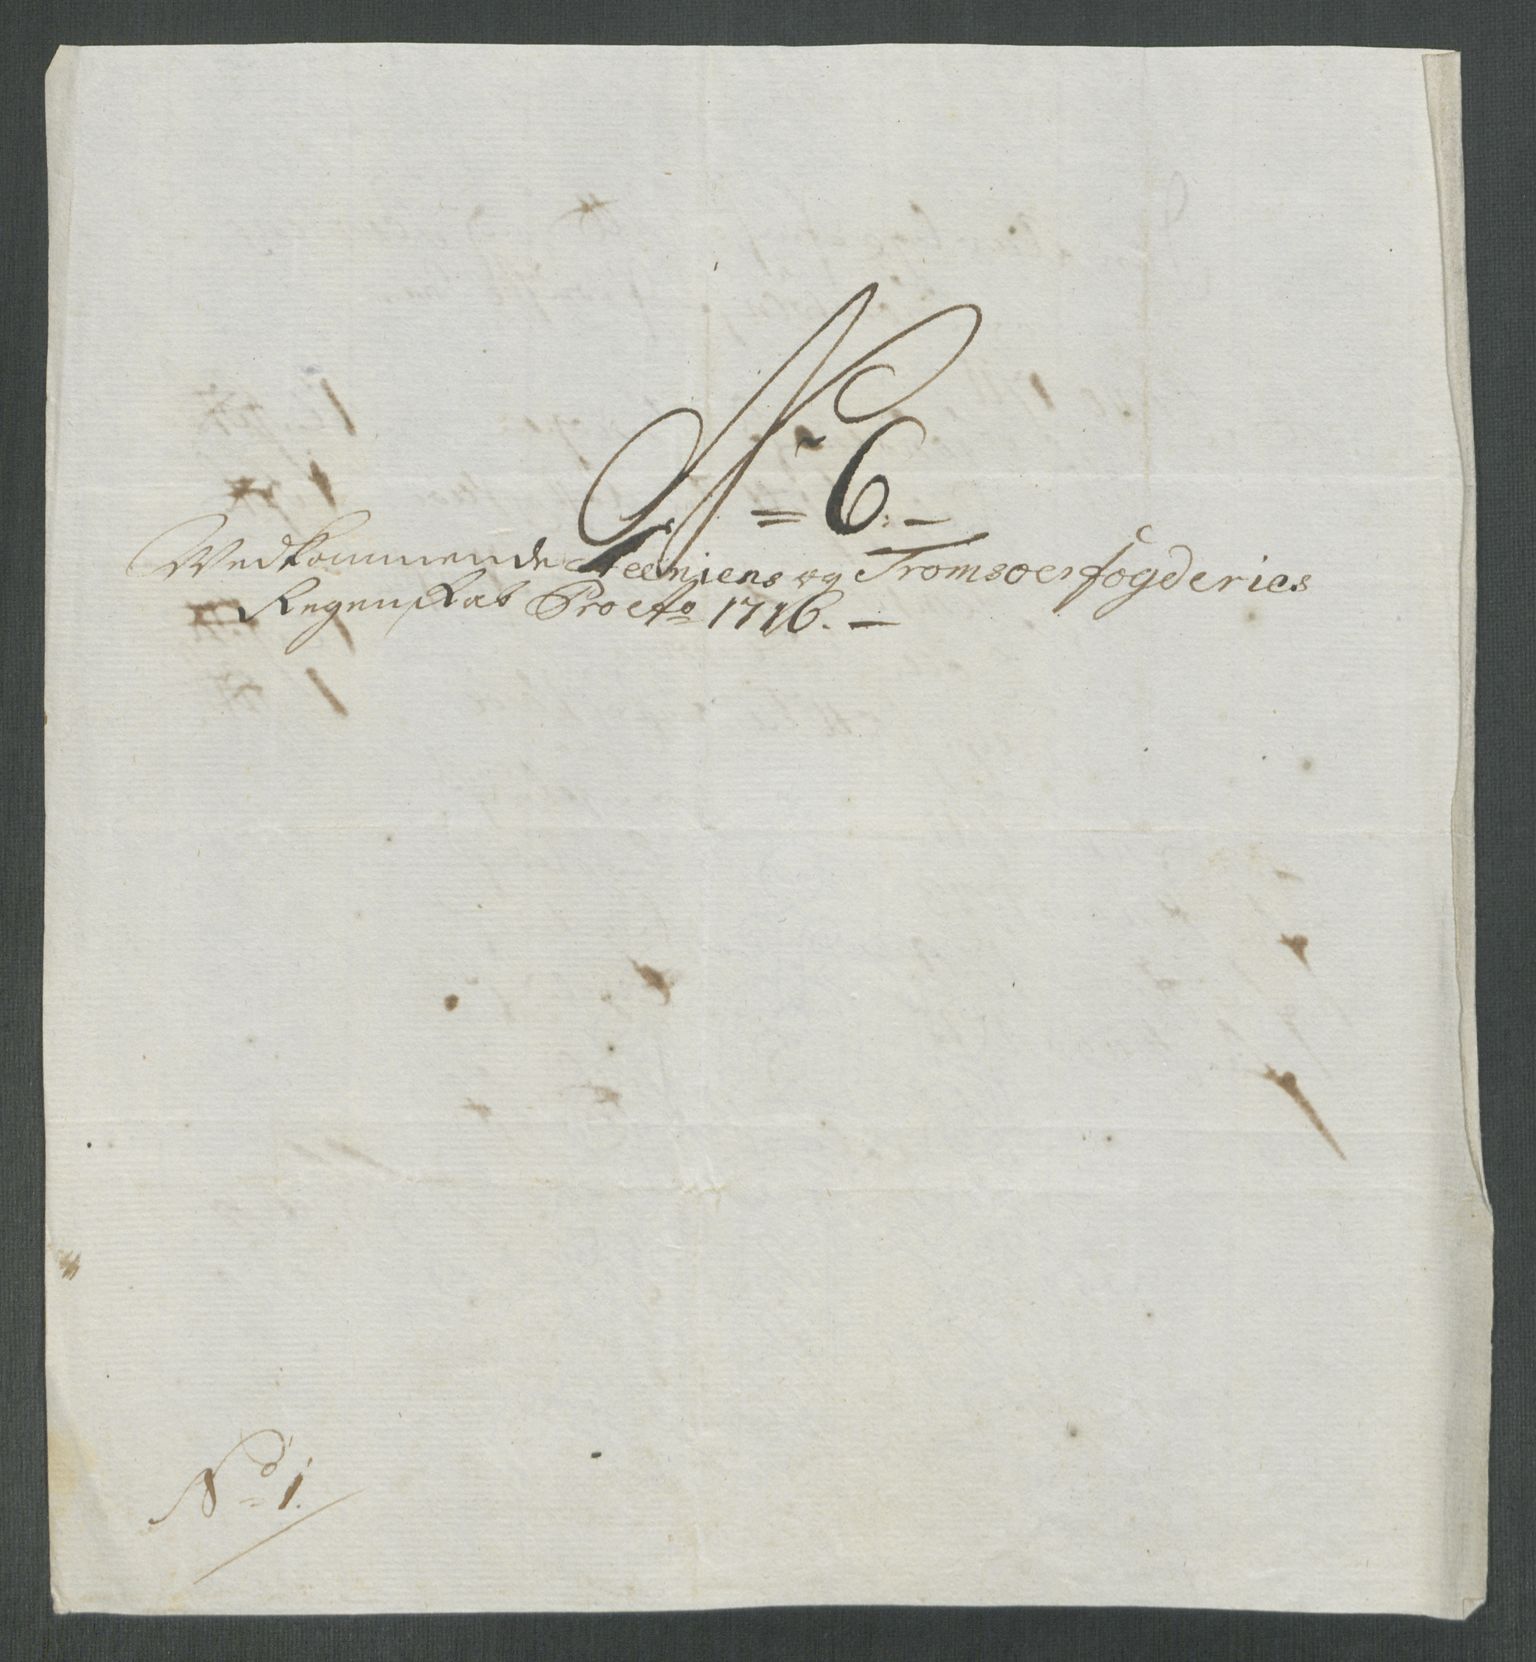 N 6. –
Vedkommende Seeniens og Tromsøes fogderies
Regenskab Pro Ao 1716. –
No 1.